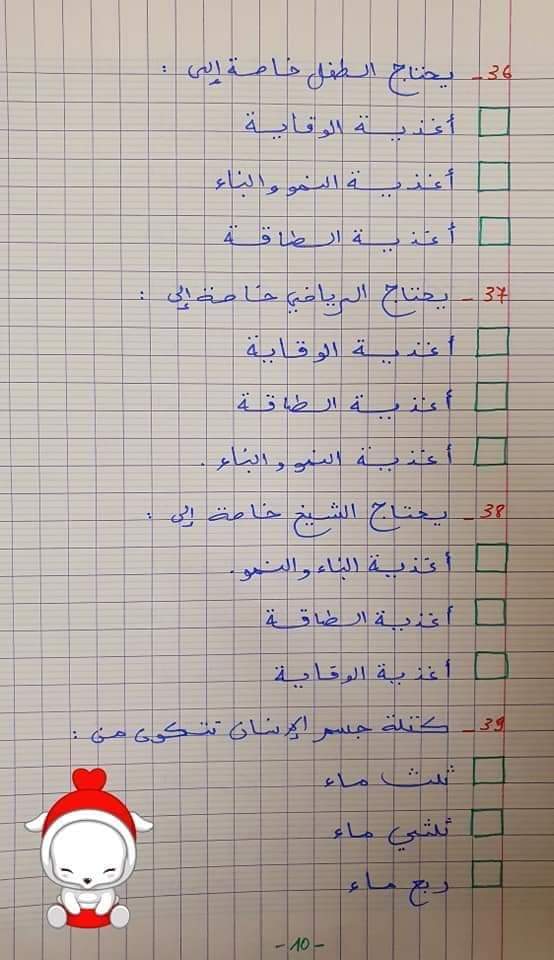 36_ يحتاج الطفل خاصة إلى :
أغذية الوقاية
أغذية النمو والبناء
أغذية الطاقة
37_ يحتاج الرياضي خاصة إلى :
أغذية الوقاية
أغذية الطاقة
أغذية النمو والبناء .
38_ يحتاج الشيخ خاصة إلى :
أغذية البناء والنمو.
أغذية الطاقة
أغذية الوقاية
39_ كتلة جسم الإنسان تتكون من :
ثلث ماء
ثلثي ماء
ربع ماء
- 10 -